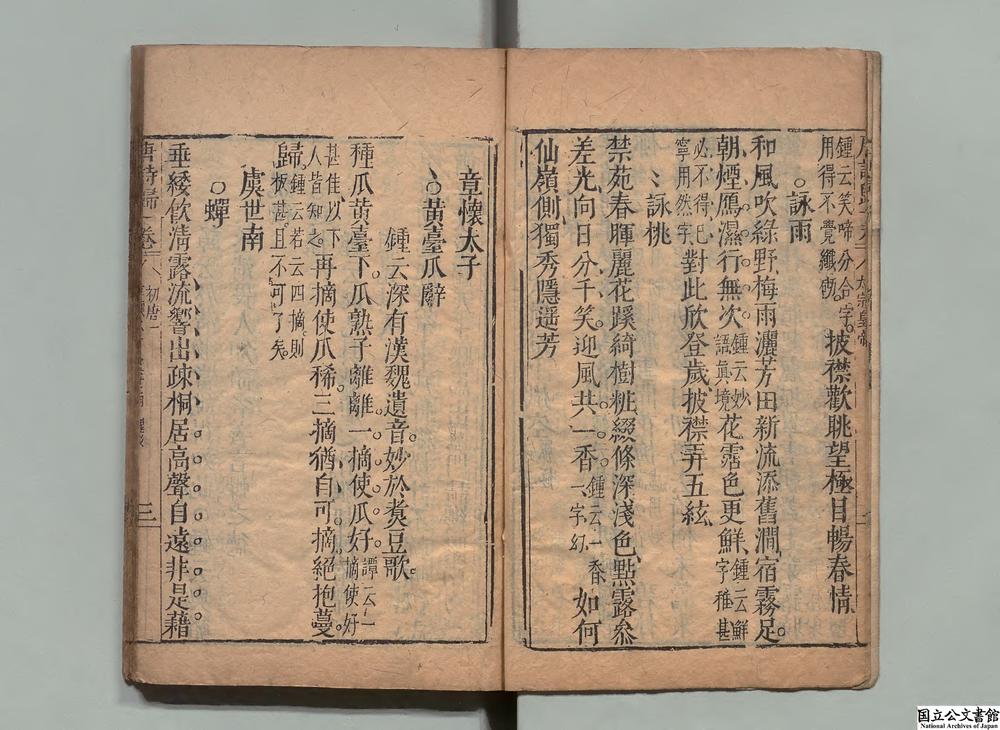 鍾云笑啼分合字
用得不覺纖俗
披襟歡眺望極目暢春情
詠雨
和風吹綠野梅雨灑芳田新流添舊澗宿霧足
朝煙鴈濕行無次
鍾云妙
語真境
花霑色更鮮
鍾云鮮
字稚甚
必不得已
寧用然字
對此欣登歲披襟弄五絃
詠桃
禁苑春暉麗花蹊綺樹粧綴條深淺色點露參
差光向日分千笑迎風共一香
鍾云一香
一字幻
如何
仙嶺側獨秀隱遥芳
章懷太子
黃臺瓜辭
鍾云深有漢魏遺音妙於煑豆歌
種瓜黃臺下瓜熟子離離一摘使瓜好
譚云一
摘使好
甚佳以下
人皆知之
再摘使瓜稀三摘猶自可摘絕抱蔓
歸
鍾云若云四摘則
板甚且不可了矣
虞世南
蟬
垂緌飲清露流響出疎桐居高聲自遠非是藉
唐詩歸
卷
初唐一
三
国立公文書館
National Archives of Japan